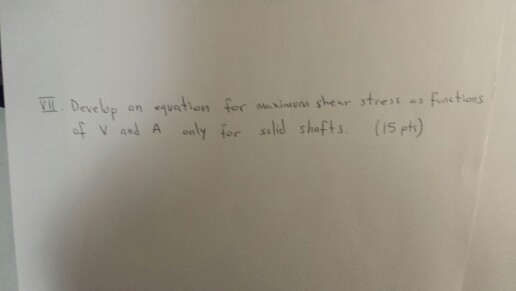 VII. Develop an equation for maximum shear stress as functions
of V and A only for solid shafts. (15 pts)